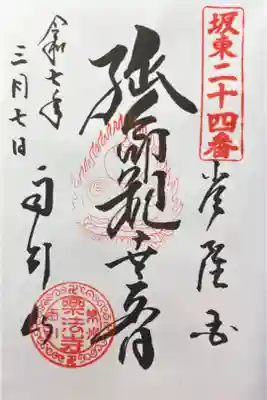 坂東二十四番
常陸国
延命観世音
雨引山
令和七年
三月七日
樂法寺